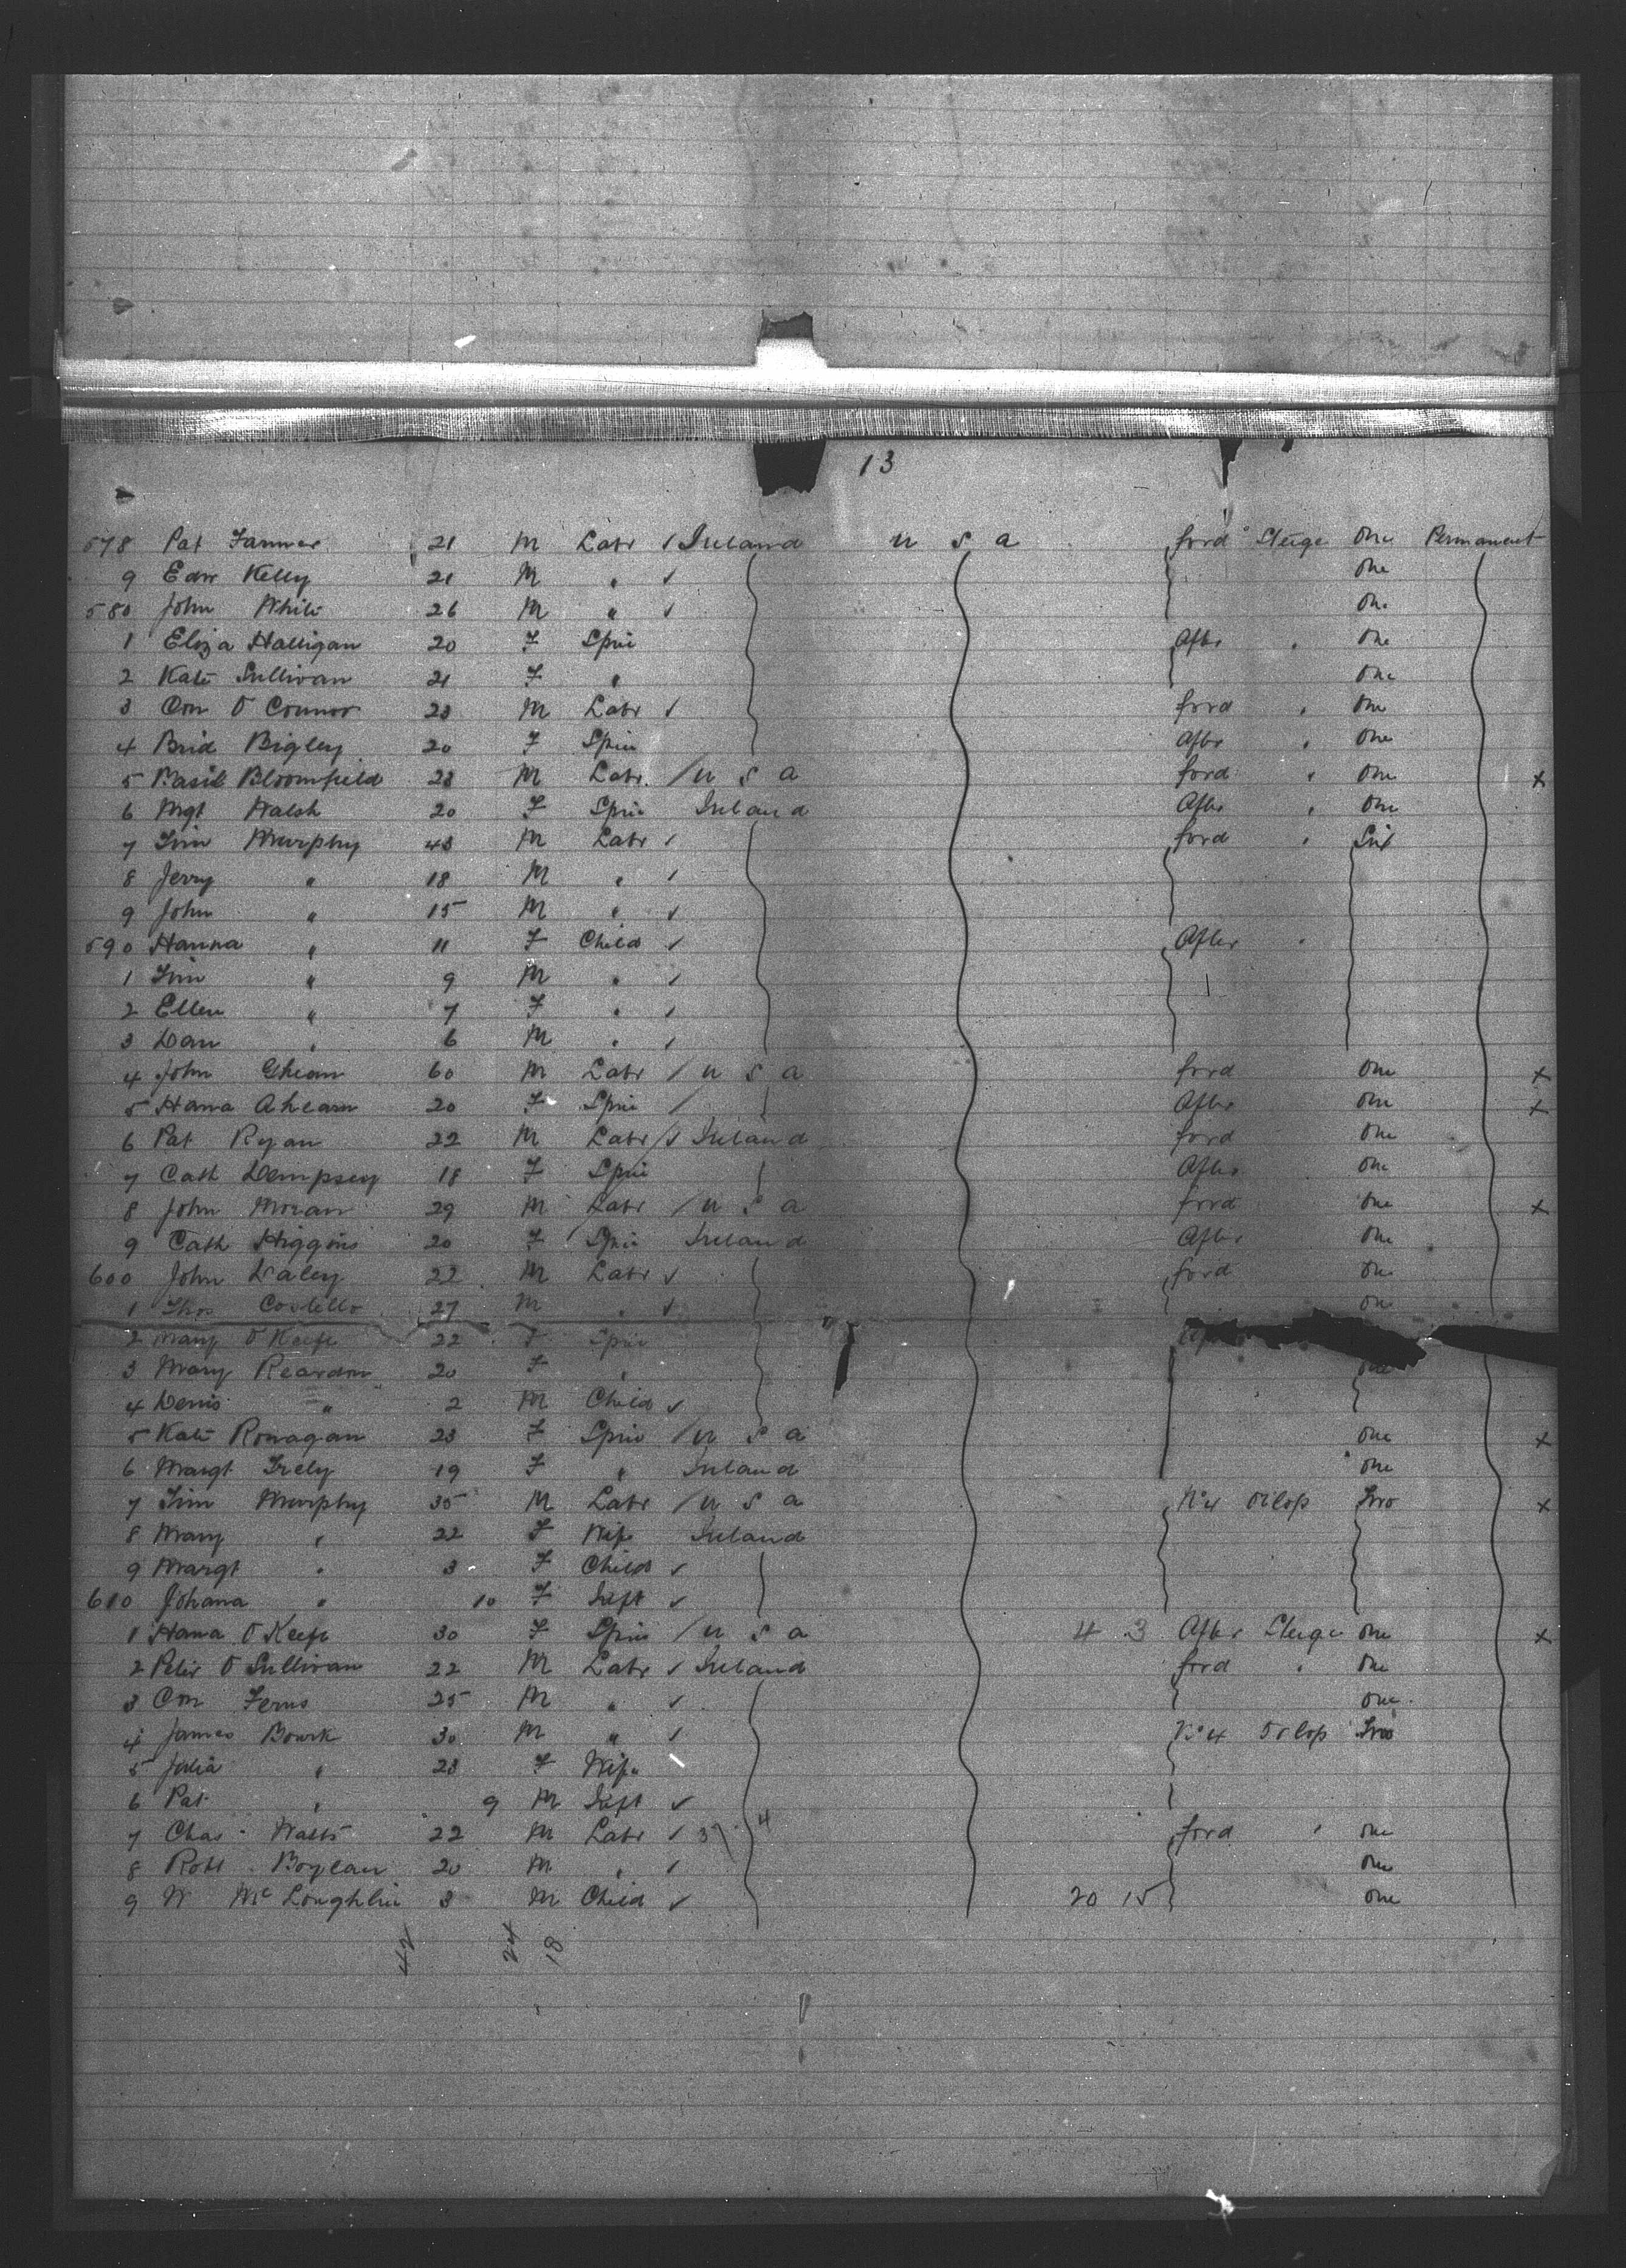 13
578 Pat Farmer 21 M Labr ✓ Ireland U S A ford Steige One Permanent
9 Edw Kelly 21 M " ✓ One
580 John White 26 M " ✓ One
1 Eliza Halligan 20 F Spin After " One
2 Kate Sullivan 21 F " One
3 Con O Connor 23 M Labr ✓ ford " One
4 Brid Bigley 20 F Spin After " One
5 Basil Bloomfield 23 M Labr / U S A ford " One x
6 Mgt Walsh 20 F Spin Ireland After " One
7 Tim Murphy 43 M Labr ✓ ford " Six
8 Jerry " 18 M " ✓
9 John " 15 M " ✓
590 Hanna " 11 F Child ✓ After "
1 Tim " 9 M " ✓
2 Ellen " 7 F " ✓
3 Dan " 6 M " ✓
4 John 60 M Labr / U S A ford One x
5 Hana Ahearn 20 F Spin / After One x
6 Pat Ryan 22 M Labr ✓ Ireland ford One
7 Cath Dempsey 18 F Spin After One
8 John Moran 29 M Labr / U S A ford One x
9 Cath Higgins 20 F Spin Ireland After One
600 John Daley 22 M Labr ✓ ford One
1 Thos Costello 27 M " ✓ One
2 Mary O Keefe 22 F Spin
3 Mary Reardon 20 F "
4 Denis " 2 M Child ✓
5 Kate Ronagan 23 F Spin / U S A One x
6 Margt 19 F " Ireland One
7 Tim Murphy 35 M Labr / U S A No 4 Two x
8 Mary " 22 F Wife Ireland
9 Margt " 3 F Child ✓
610 Johana " 10 F Inft ✓
1 Hana O Keefe 30 F Spin / U S A 4 3 After Steige One x
2 Peter O Sullivan 22 M Labr ✓ Ireland ford " One
3 Con Ferns 25 M " ✓ One
4 James Bourk 30 M " ✓ No 4 Two
5 Julia " 23 F Wife
6 Pat " 9 M Inft ✓
7 Chas Watts 22 M Labr ✓ 37 4 ford " One
8 Robt Boylan 20 M " ✓ One
9 W McLoughlin 3 M Child ✓ 20 15 One
42 24 18